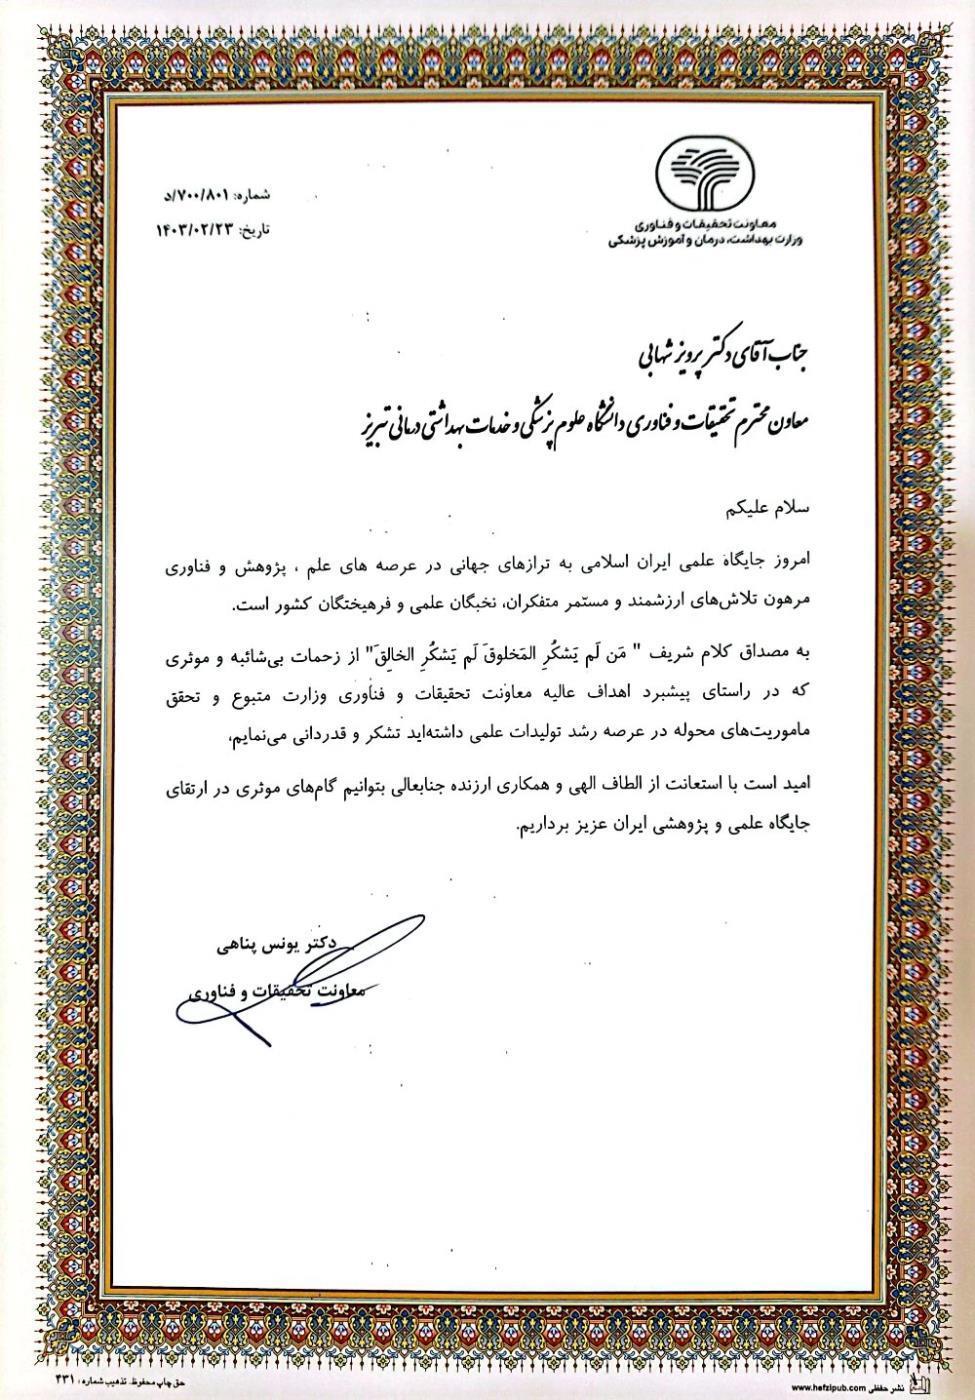 معاونت تحقیقات و فناوری
وزارت بهداشت، درمان و آموزش پزشکی
شماره: ۷۰۰/۸۰۱/د
تاریخ: ۱۴۰۳/۰۲/۲۳
جناب آقای دکتر پرویز شهابی
معاون محترم تحقیقات و فناوری دانشگاه علوم پزشکی و خدمات بهداشتی درمانی تبریز
سلام علیکم
امروز جایگاه علمی ایران اسلامی به ترازهای جهانی در عرصه های علم ، پژوهش و فناوری
مرهون تلاش‌های ارزشمند و مستمر متفکران، نخبگان علمی و فرهیختگان کشور است.
به مصداق کلام شریف " مَن لَم یَشکُرِ المَخلوقَ لَم یَشکُرِ الخالِقَ" از زحمات بی‌شائبه و موثری
که در راستای پیشبرد اهداف عالیه معاونت تحقیقات و فنأوری وزارت متبوع و تحقق
ماموریت‌های محوله در عرصه رشد تولیدات علمی داشته‌اید تشکر و قدردانی می‌نمایم،
امید است با استعانت از الطاف الهی و همکاری ارزنده جنابعالی بتوانیم گام‌های موثری در ارتقای
جایگاه علمی و پژوهشی ایران عزیز برداریم.
دکتر یونس پناهی
معاونت تحقیقات و فناوری
نشر حفظی www.hefzipub.com
حق چاپ محفوظ. تذهیب شماره: ۴۳۱